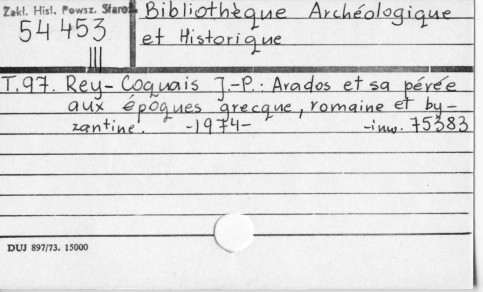 Zakł. Hist. Powsz. Staroż.
54 453
III
Bibliothèque Archéologique
et Historique
T.97. Rey-Coquais J.-P.: Arados et sa pérée
aux épôques grecque, romaine et by-
zantine. -1974- -inw. 75383
DUJ 897/73. 15000